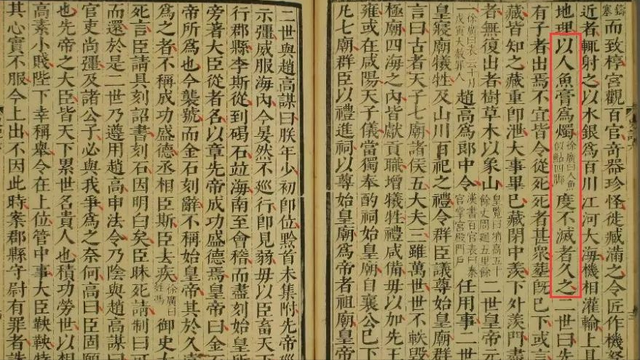 而致椁宮觀百官奇器珍怪徙藏滿之令匠作機弩
近者輒射之以水銀為百川江河大海機相灌輸上具
地理以人魚膏為燭徐廣曰人魚似鮎四脚度不滅者久之二世曰
有子者出焉不宜皆令從死死者甚衆葬既已下或
藏皆知之藏重即泄大事畢已藏閉中羨下外羨門盡
者無復出者樹草木以象山
趙高為郎中令漢書百官表曰秦官掌宮殿門戶任用事二世
皇寢廟犧牲及山川百祀之禮令羣臣議尊始皇廟
言曰古者天子七廟諸侯五大夫三雖萬世世不軼毀
極廟四海之內皆獻貢職增犧牲禮咸備毋以加先王
雍或在咸陽天子儀當獨奉酌祠始皇廟
凡七廟羣臣以禮進祠以尊始皇廟
二世與趙高謀曰朕年少初即位黔首未集附先帝巡
示彊威服海內今晏然不巡行即見弱毋以臣畜天下
行郡縣李斯從到碣石並海南至會稽而盡刻始皇
旁著大臣從者名以章先帝成功盛德焉皇帝曰
帝所為也今襲號而金石刻辭不稱始皇帝其於久
為之者不稱成功盛德丞相臣斯臣去疾徐廣曰姓馮御史大
死言臣請具刻詔書刻石因明白矣臣昧死請制曰可
而還於是二世乃遵用趙高申法令乃陰與趙高謀
官吏尚彊及諸公子必與我爭為之奈何高曰臣固
也先帝之大臣皆天下累世名貴人也積功勞世以相
高素小賤陛下幸稱舉令在上位管中事大臣鞅鞅特
其心實不服今上出不因此時案郡縣守尉有罪者誅